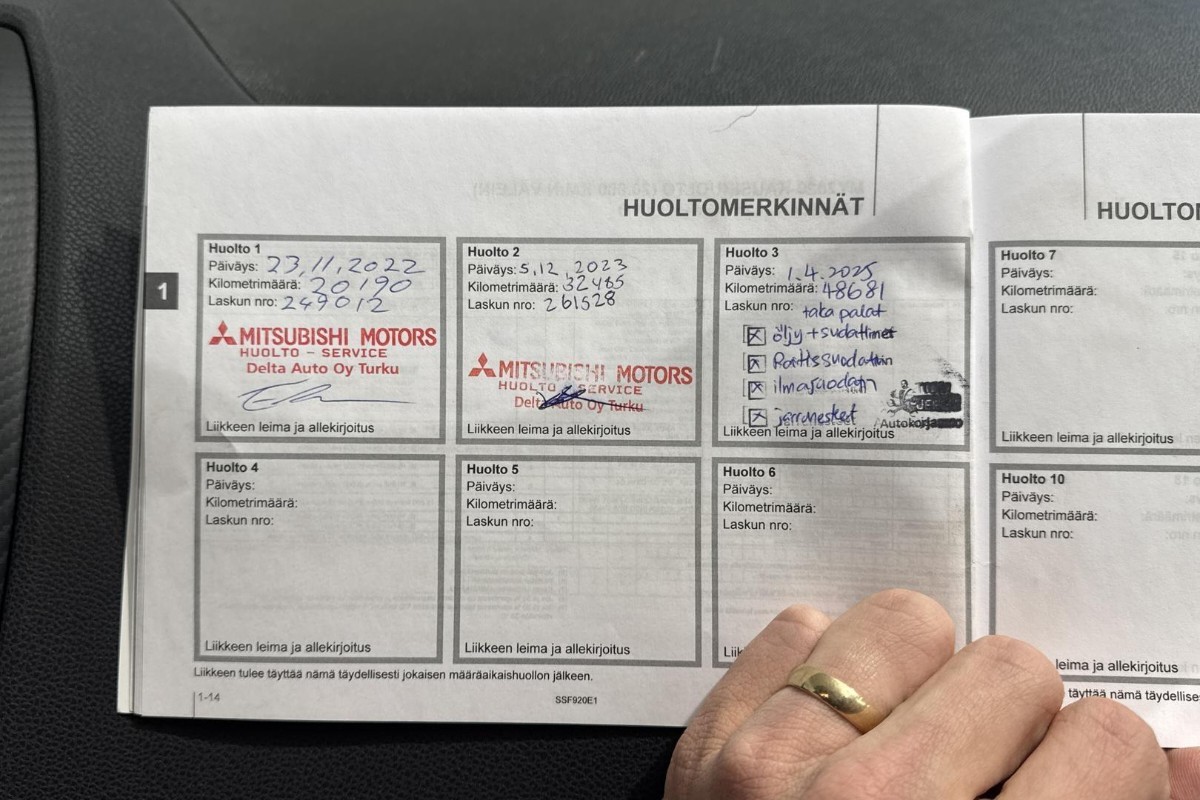 HUOLTOMERKINNÄT
1
Huolto 1
Päiväys: 23,11,2022
Kilometrimäärä: 20190
Laskun nro: 249012
MITSUBISHI MOTORS
HUOLTO - SERVICE
Delta Auto Oy Turku
Liikkeen leima ja allekirjoitus
Huolto 2
Päiväys: 5,12,2023
Kilometrimäärä: 32485
Laskun nro: 261528
MITSUBISHI MOTORS
HUOLTO - SERVICE
Delta Auto Oy Turku
Liikkeen leima ja allekirjoitus
Huolto 3
Päiväys: 1.4.2025
Kilometrimäärä: 48681
Laskun nro:
taka palat
öljy + sudattimet
ilmasuodatin
jarrunesteet
Liikkeen leima ja allekirjoitus
Huolto 4
Päiväys:
Kilometrimäärä:
Laskun nro:
Liikkeen leima ja allekirjoitus
Huolto 5
Päiväys:
Kilometrimäärä:
Laskun nro:
Liikkeen leima ja allekirjoitus
Huolto 6
Päiväys:
Kilometrimäärä:
Laskun nro:
Liikkeen tulee täyttää nämä täydellisesti jokaisen määräaikaishuollon jälkeen.
1-14
SSF920E1
HUOLTO
Huolto 7
Päiväys:
Kilometrimäärä:
Laskun nro:
Liikkeen leima ja allekirjoitus
Huolto 10
Päiväys:
Kilometrimäärä:
Laskun nro:
leima ja allekirjoitus
täyttää nämä